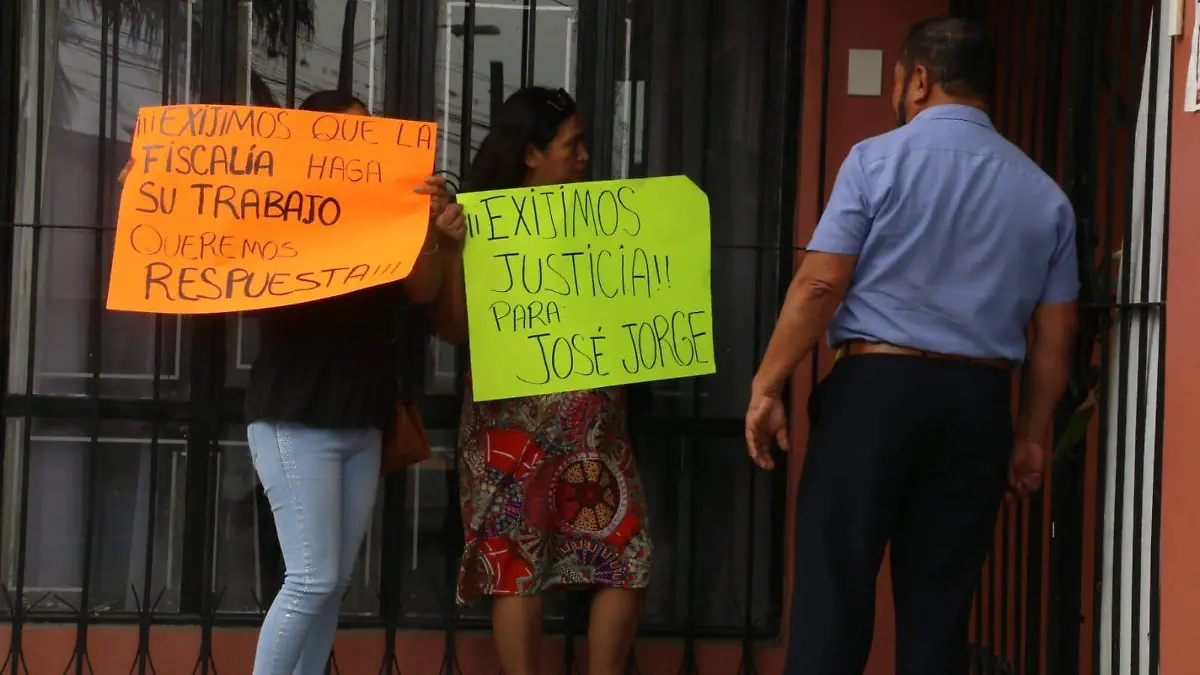 ¡¡¡EXIJIMOS QUE LA
FISCALÍA HAGA
SU TRABAJO
QUEREMOS
RESPUESTA!!!
¡¡EXIJIMOS
JUSTICIA!!
PARA
JOSÉ JORGE